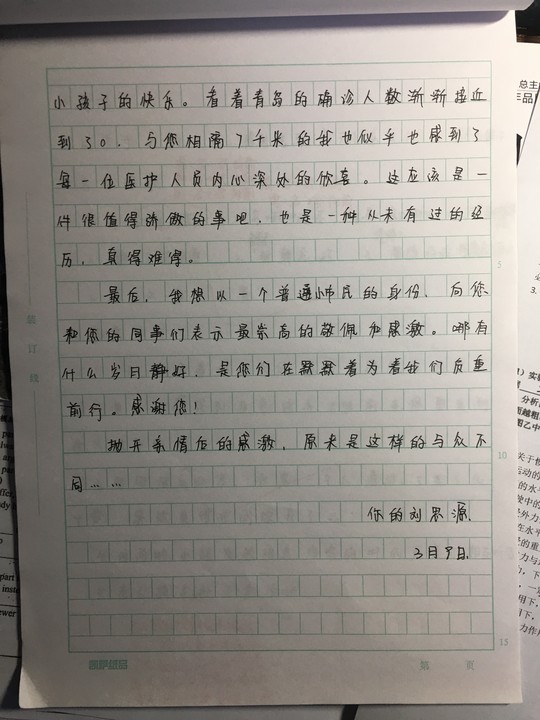 小孩子的快乐。看着青岛的确诊人数渐渐接近
到30，与您相隔7千米的我也似乎也感到了
每一位医护人员内心深处的欣喜。这应该是一
件很值得骄傲的事吧，也是一种从未有过的经
历，真得难得。
最后，我想以一个普通小市民的身份，向您
和您的同事们表示最崇高的敬佩和感激。哪有
什么岁月静好，是您们在默默着为着我们负重
前行。感谢您！
抛开亲情后的感激，原来是这样的与众不
同……
你的刘思源.
3月9日.
装
订
线
5
10
15
第 页
总主
3.
分析
图乙中
关于
运动的
的水平
使中的
在水平
力作用
part